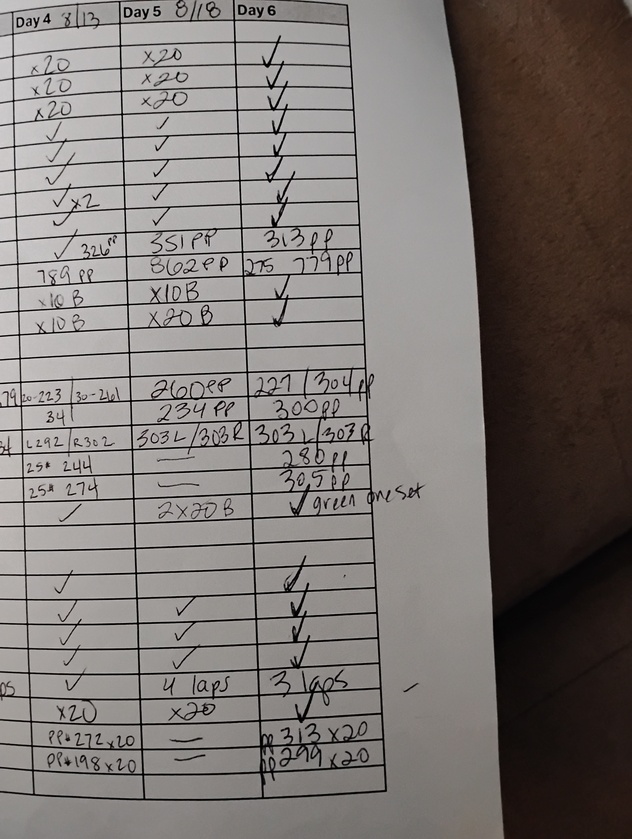 Day 4 8/13 Day 5 8/18 Day 6
x20 x20 ✓
x20 x20 ✓
x20 x20 ✓
✓ ✓ ✓
✓ ✓ ✓
✓ ✓ ✓
✓x2 ✓ ✓
✓ ✓ ✓
✓ 326pp 351 PP 313pp
789 pp 862 PP 275 779pp
x10 B x10B ✓
x10 B x20 B ✓
79 20-223 / 30-261 260PP 227 / 304pp
341 234 PP 300pp
L292 / R302 303L/303R 303L/303R
25# 244 — 280pp
25# 274 — 305pp
✓ 2x20 B ✓ green one set
✓ ✓
✓ ✓ ✓
✓ ✓ ✓
✓ ✓ ✓
ps ✓ 4 laps 3 laps
x20 x20 ✓
PP#272 x20 — pp 313 x20
PP#198 x20 — pp 299 x20